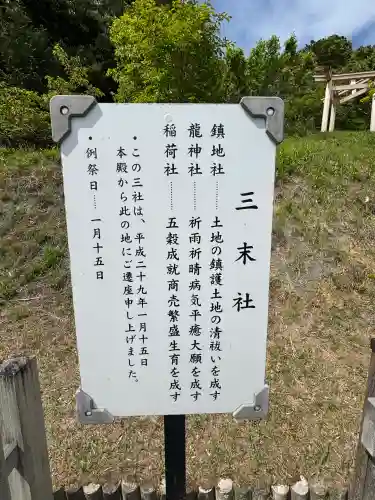 三末社
鎮地社……… 土地の鎮護土地の清祓いを成す
龍神社……… 祈雨祈晴病気平癒大願を成す
稲荷社……… 五穀成就商売繁盛生育を成す
・この三社は、平成二十九年一月十五日
本殿から此の地にご遷座申し上げました。
・例祭日…… 一月十五日